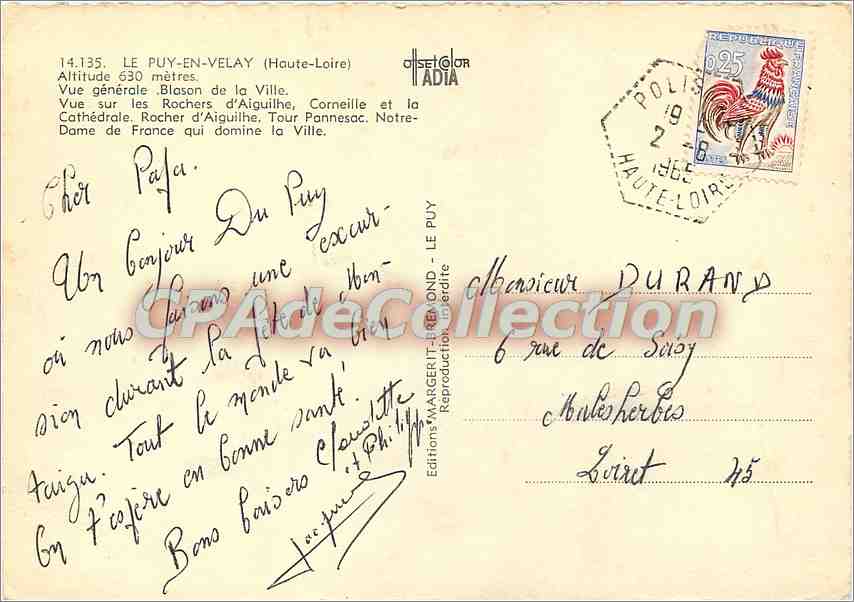 14.135. LE PUY-EN-VELAY (Haute-Loire)
Altitude 630 mètres.
Vue générale .Blason de la Ville.
Vue sur les Rochers d'Aiguilhe, Corneille et la
Cathédrale. Rocher d'Aiguilhe. Tour Pannesac. Notre-
Dame de France qui domine la Ville.
offset COLOR
ADIA
REPUBLIQUE
FRANÇAISE
0,25
POLIS
19
2 -8
1965
HAUTE-LOIRE
Cher Papa.
Un bonjour Du Puy
où nous faisons une excur-
sion durant la fête de Mon-
taigu. Tout le monde va bien
On t'espère en bonne santé.
Bons baisers Claudette
et Philippe
Jacques
Editions MARGERIT-BREMOND - LE PUY
Reproduction interdite
Monsieur DURAND
6 rue de
Malesherbes
Loiret 45
CPAdeCollection.com